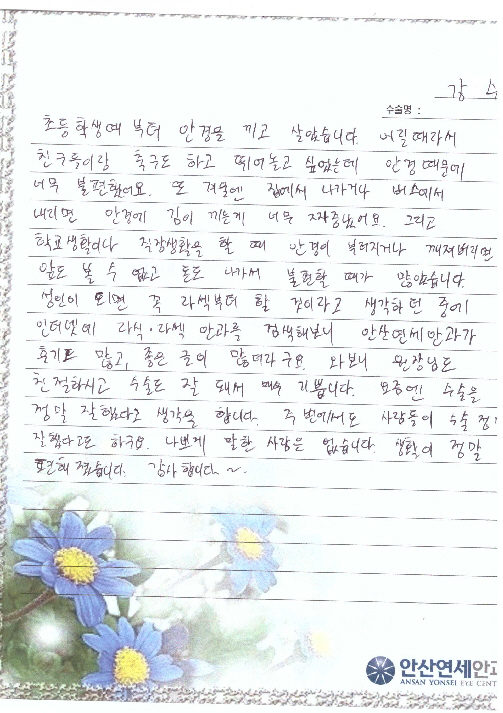 강 수
수술명 :
초등학생때 부터 안경을 끼고 살았습니다. 어릴때라서
친구들이랑 축구도 하고 뛰어놀고 싶었는데 안경 때문에
너무 불편했어요. 또 겨울엔 집에서 나가거나 버스에서
내리면 안경에 김이 끼는게 너무 짜증났어요. 그리고
학교생활이나 직장생활을 할 때 안경이 부러지거나 깨져버리면
앞도 볼 수 없고 돈도 나가서 불편할 때가 많았습니다.
성인이 되면 꼭 라섹부터 할 것이라고 생각하던 중에
인터넷에 라식·라섹 안과를 검색해보니 안산연세안과가
후기도 많고, 좋은 글이 많더라구요. 와보니 원장님도
친절하시고 수술도 잘 돼서 매우 기쁩니다. 요즘엔 수술을
정말 잘했다고 생각을 합니다. 주변에서도 사람들이 수술 정
잘했다고도 하구요. 나쁘게 말한 사람은 없습니다. 생활이 정말
편해졌습니다. 감사합니다~.
안산연세안과
ANSAN YONSEI EYE CENT